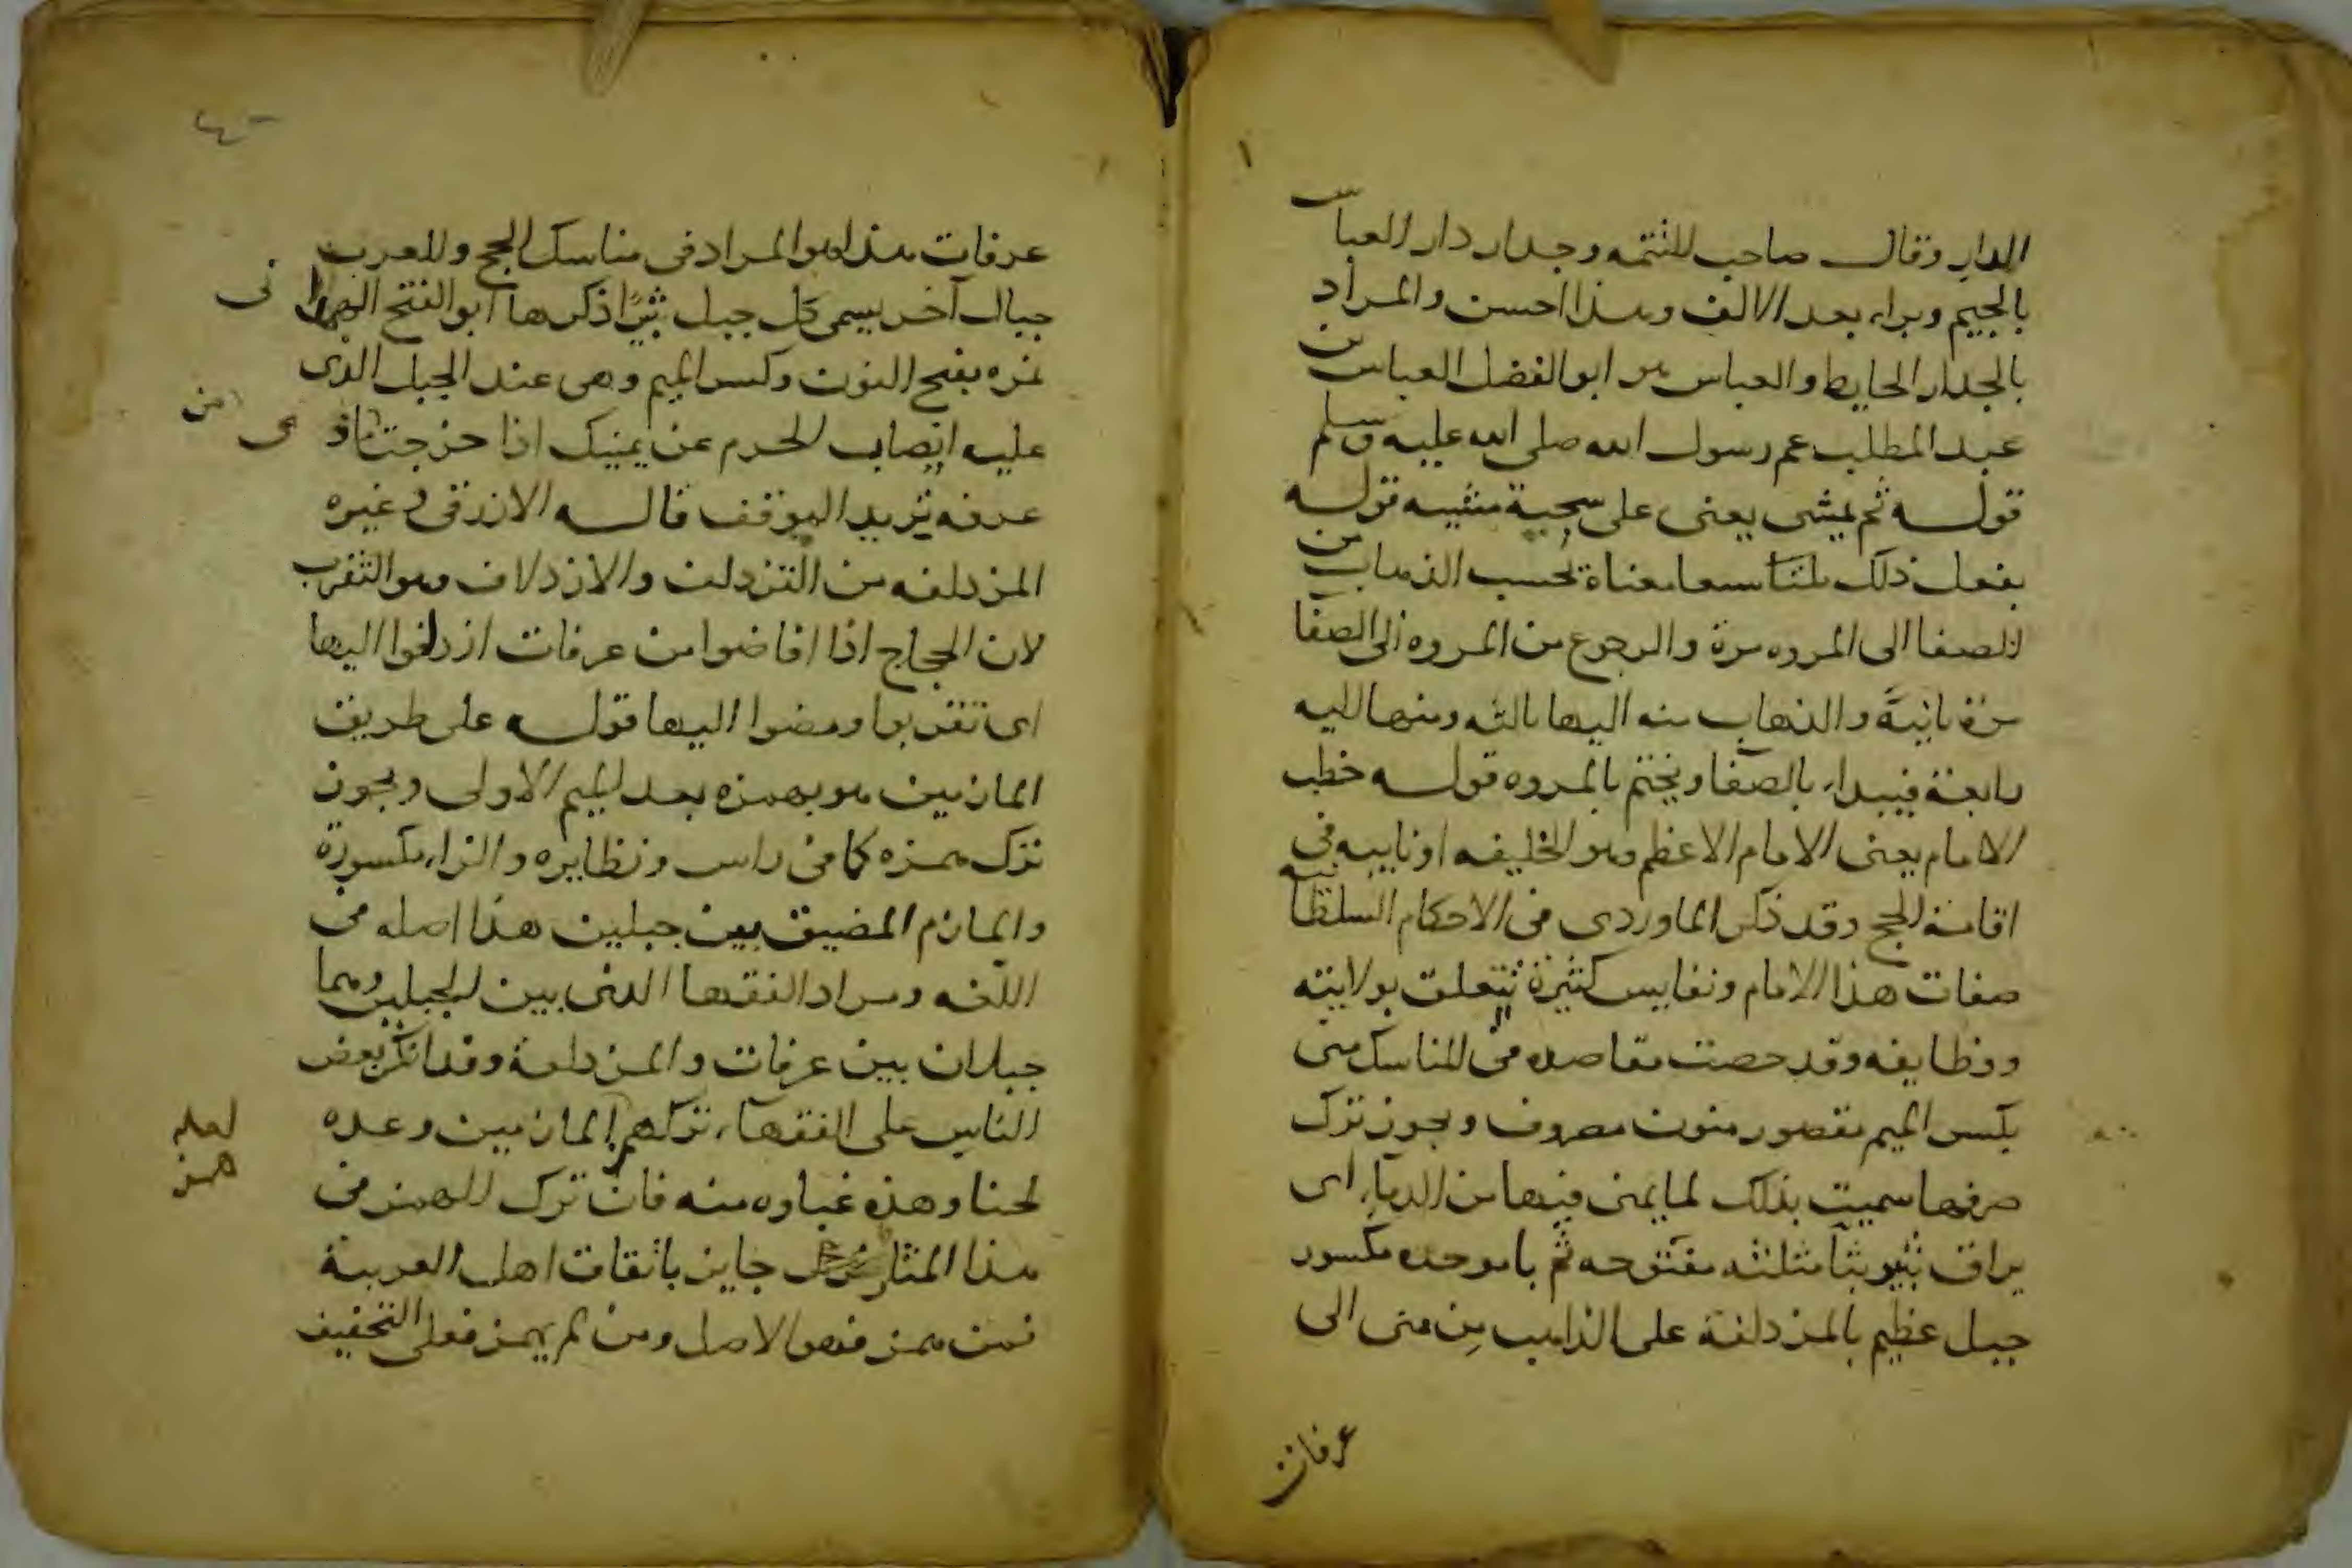 الدار وقال صاحب التتمه وجدار دار العباس
بالجيم وبراء بعد الالف وهذا احسن والمراد
بالجدار الحايط والعباس هو ابو الفضل العباس بن
عبد المطلب عم رسول الله صلى الله عليه وسلم
قوله ثم يمشى يعنى على سجية مشيه قوله
يفعل ذلك سبعا معناة تحسب الذهاب من
الصفا الى المروه مرة والرجوع من المروه الى الصفا
مرة ثانية والذهاب منه اليها ثالثه ومنها اليه
رابعة فيبداء بالصفا ويختم بالمروه قوله خطب
الامام يعنى الامام الاعظم وهو الخليفه او نايبه فى
اقامة الحج وقد ذكر الماوردى فى الاحكام السلطانيه
صفات هذا الامام ونفايس كثيرة تتعلق بولايته
ووظايفه وقد مقاصده فى المناسك منى
بكسر الميم مقصور منون مصروف ويجوز ترك
صرفها سميت بذلك لما يمنى فيها من الدماء اى
يراق ثبير بثا مثلثه مفتوحه ثم با موحده مكسور
جبل عظيم بالمزدلفة على الذاهب من منى الى
عرفات
عرفات هذا هو المراد فى مناسك الحج وللعرب
جبال آخر يسمى كل جبل ثبيرا ذكرها ابو الفتح الهمدا نى
نمره بفتح النون وكسر الميم وهى عند الجبل الذى
عليه انصاب الحرم عن يمينك اذا خرجت من
عرفه تريد الموقف قاله الازرقى وغيره
المزدلفه من التزدلف والازدلاف وهو التقرب
لان الحجاج اذا افاضوا من عرفات ازدلفوا اليها
اى تقربوا ومضوا اليها قوله على طريق
المازمين هو بهمزه بعد الميم الاولى ويجوز
ترك همزه كما فى راس ونظايره والزاء مكسورة
والمازم المضيق بين جبلين هذا اصله فى
اللغه ومراد الفقها الذى بين الجبلين وهما
جبلان بين عرفات والمزدلفة وقد انكر بعض
الناس على الفقهاء تركهم المازمين وعده
لعله همز
لحنا وهذه غباوه منه فان ترك الهمز فى
هذا المثال جايز باتفاق اهل العربية
فمن همز فهو الاصل ومن لم يهمز فعلى التخفيف